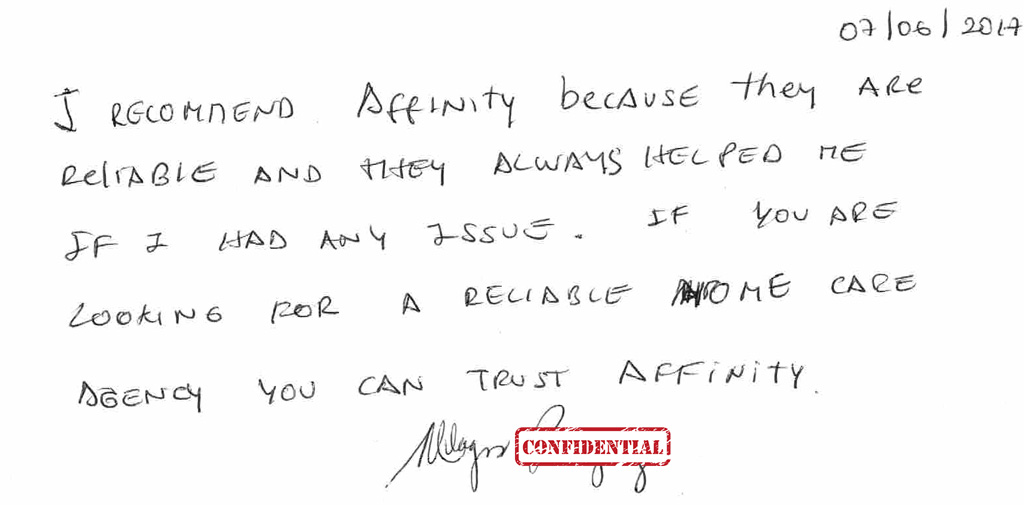 07/06/2017
I RECOMMEND AFFINITY because they ARE
RELIABLE AND THEY ALWAYS HELPED ME
IF I HAD ANY ISSUE. IF YOU ARE
LOOKING FOR A RELIABLE HOME CARE
AGENCY YOU CAN TRUST AFFINITY.
CONFIDENTIAL